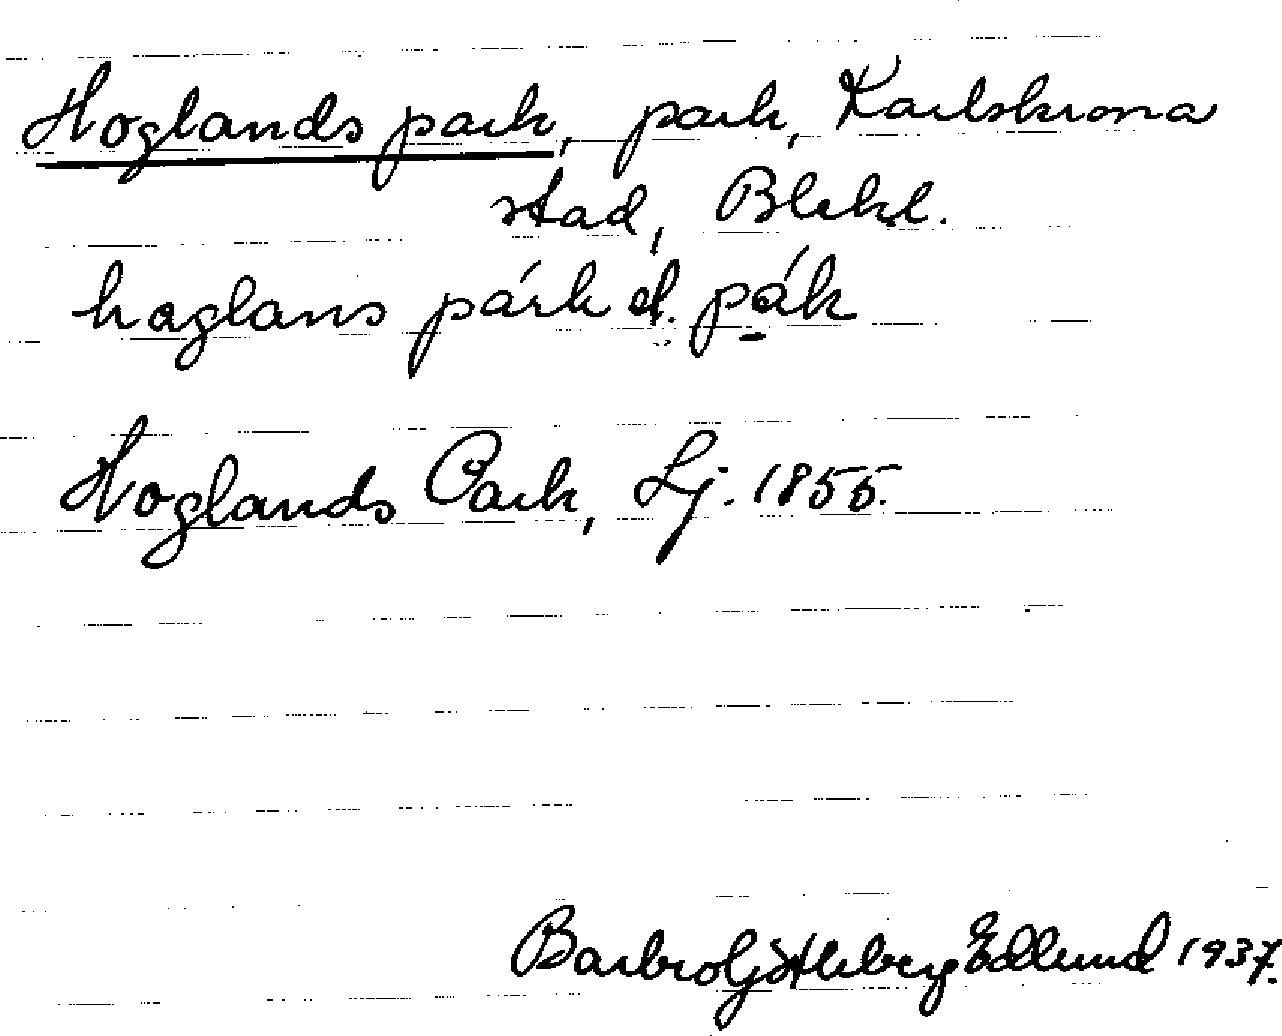 Hoglands park, park, Karlskrona
stad, Blek.l.
hoglans párk el. pák
Hoglands Park, Lj. 1855.
Barbro Götleberg Edlund 1937.